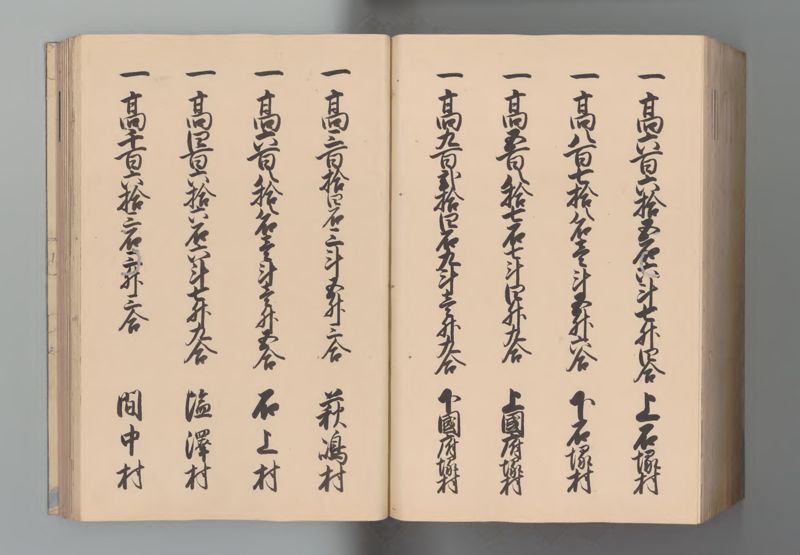 一高六百六拾五石六斗七升四合 上石塚村
一高八百七拾八石壱斗五升六合 下石塚村
一高五百八拾七石七斗四升九合 上國府塚村
一高九百弐拾四石九斗壱升九合 下國府塚村
一高三百拾四石三斗五升三合 萩嶋村
一高六百八拾八石壱斗壱升五合 石上村
一高四百六拾六石六斗七升九合 塩澤村
一高千百六拾三石三升三合 間中村